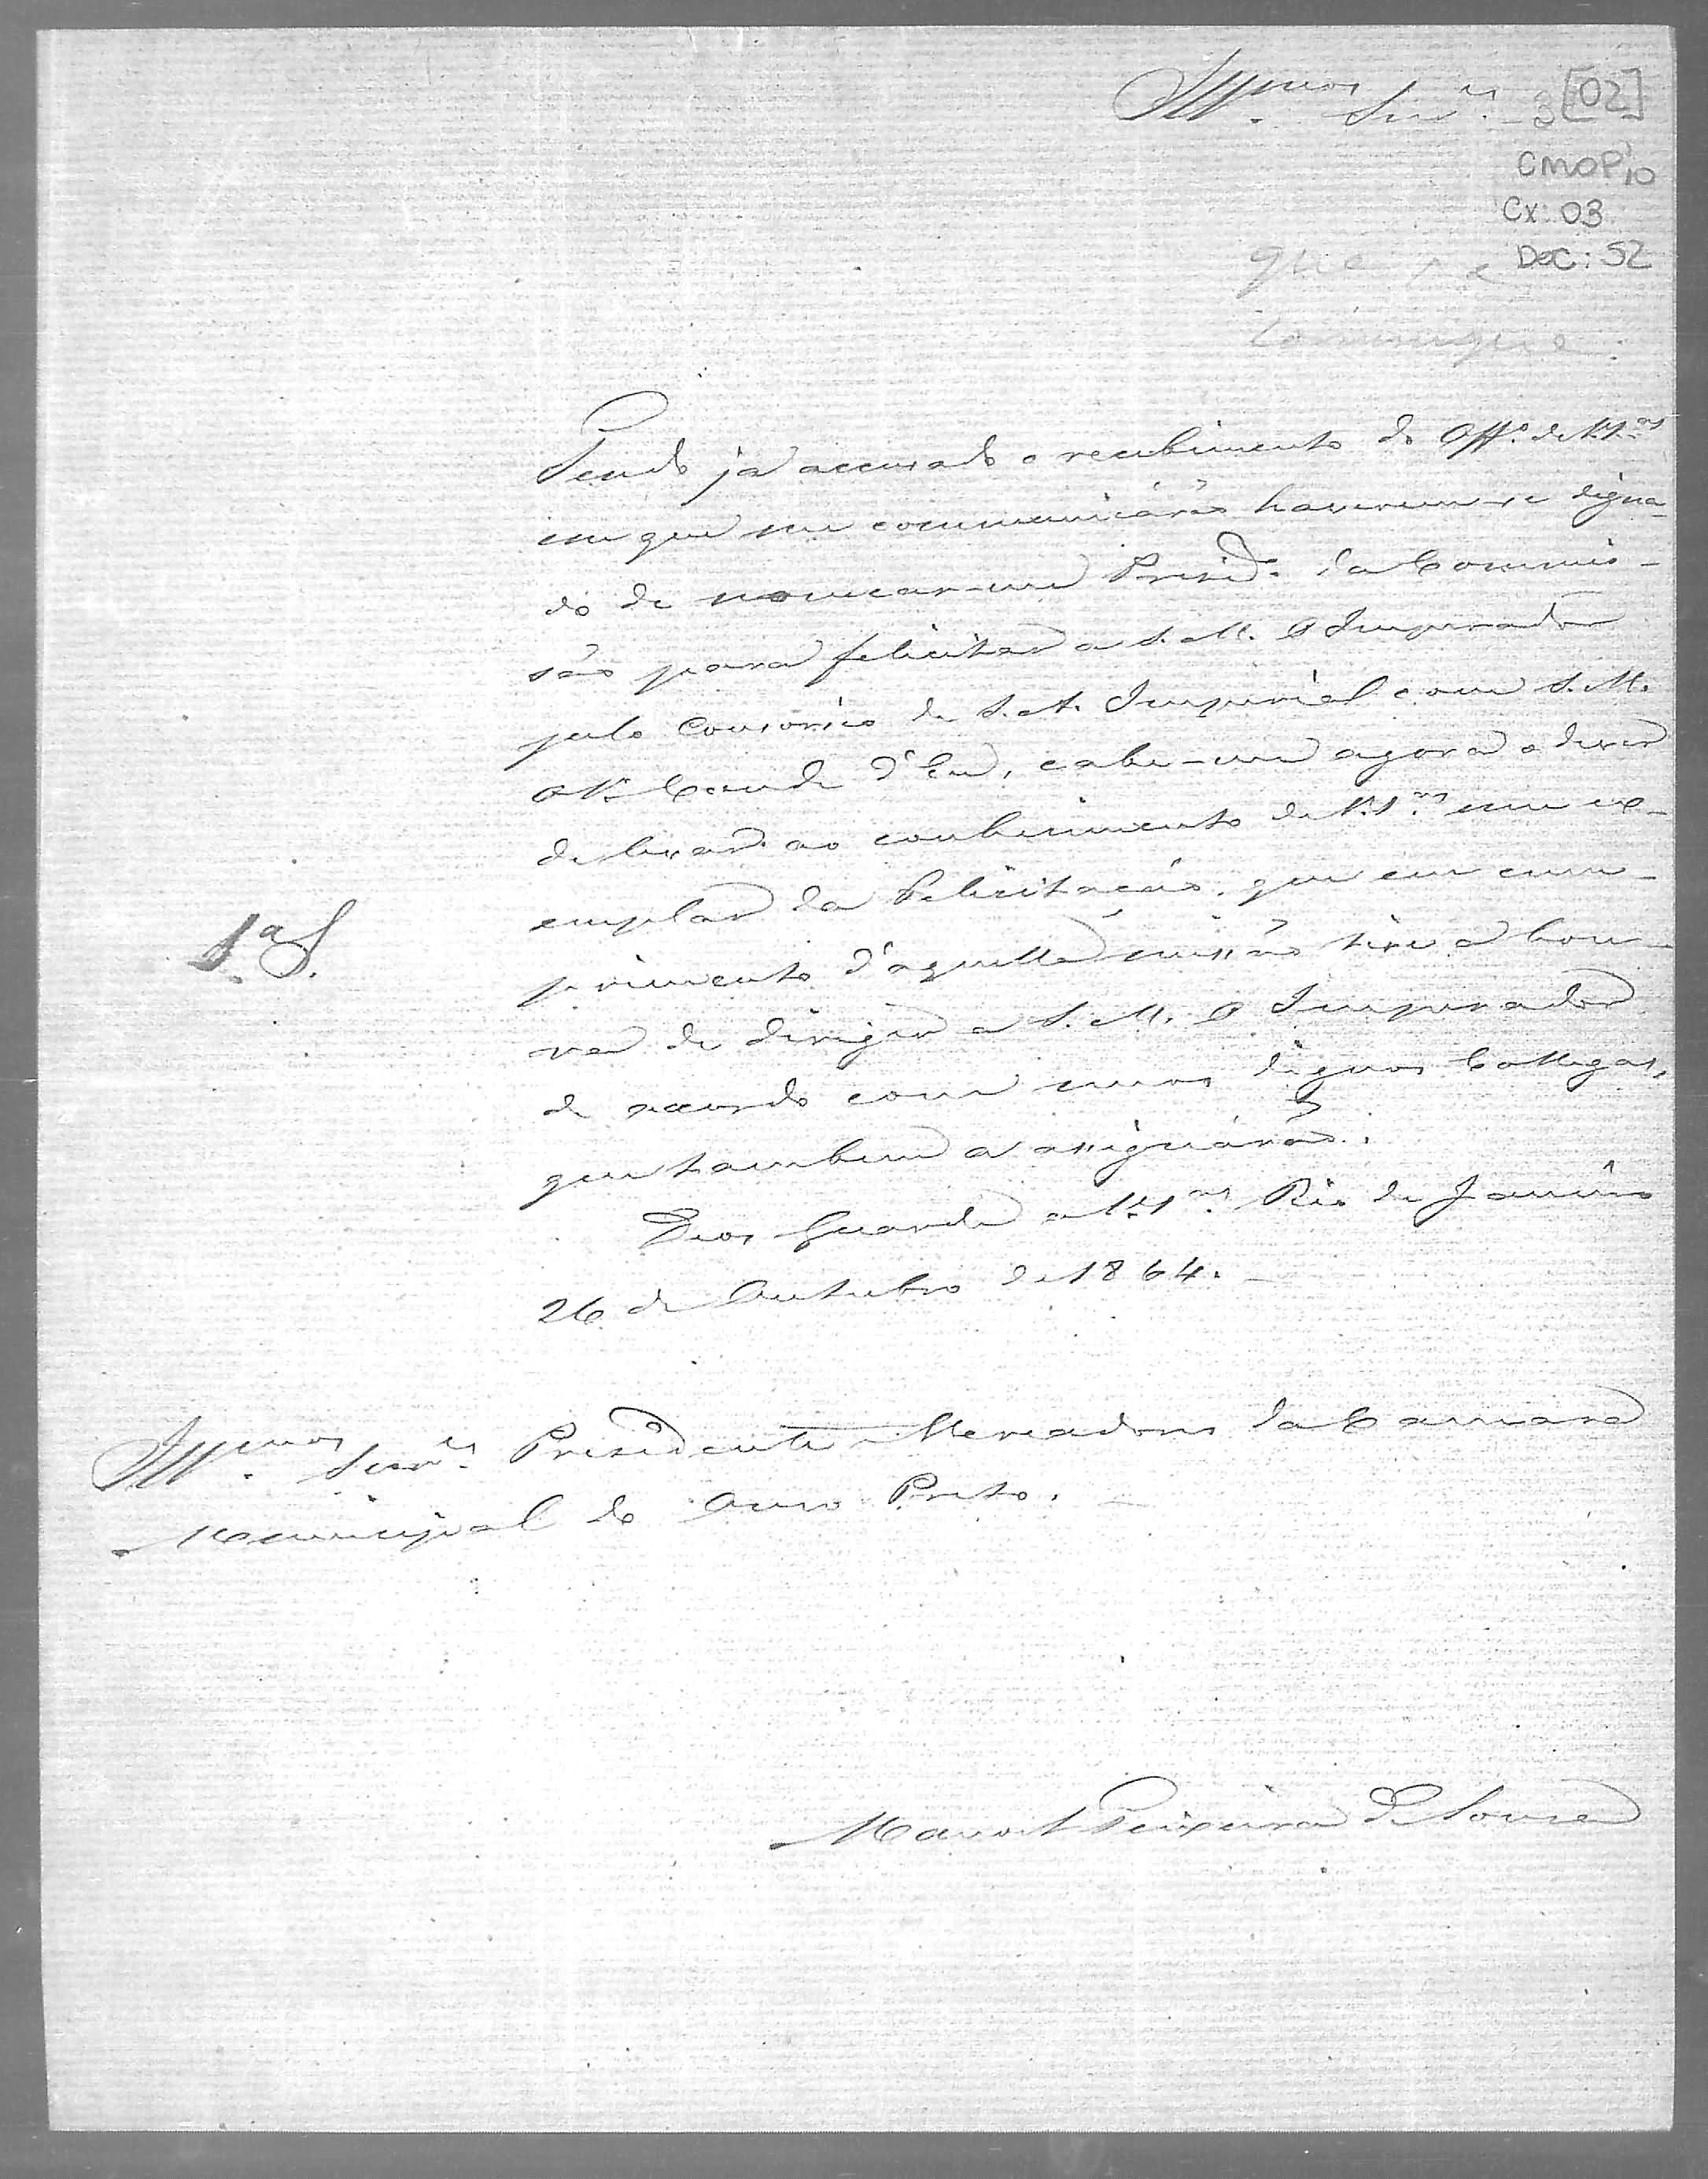 Ill.mos Snr.es [02]
CMOP 10
Cx: 03
Doc: 52
que se
communique
Tendo já accusado o recebimento do Off.o de V.S.as
em que me communicárão haverem-se digna-
do de nomear-me Presid.e da Commis-
são para felicitar a S. M. O Imperador
pelo Consorcio de S. A. Imperial com S. A.
o Sr. Conde d'Eu, cabe-me agora o dever
de levar ao conhecimento de V.S.as um ex-
emplar da Felicitação, que em cum-
primento d'aquella missão tive a hon-
ra de dirigir a S. M. O Imperador
de accordo com meos dignos Collegas,
que tambem a assignárão.
1.a S.
Deos Guarde a V.S.as Rio de Janeiro
26 de Outubro de 1864.
Ill.mos Snr.es Presidente e Vereadores da Camara
Municipal do Ouro Preto.
Manoel Teixeira de Souza